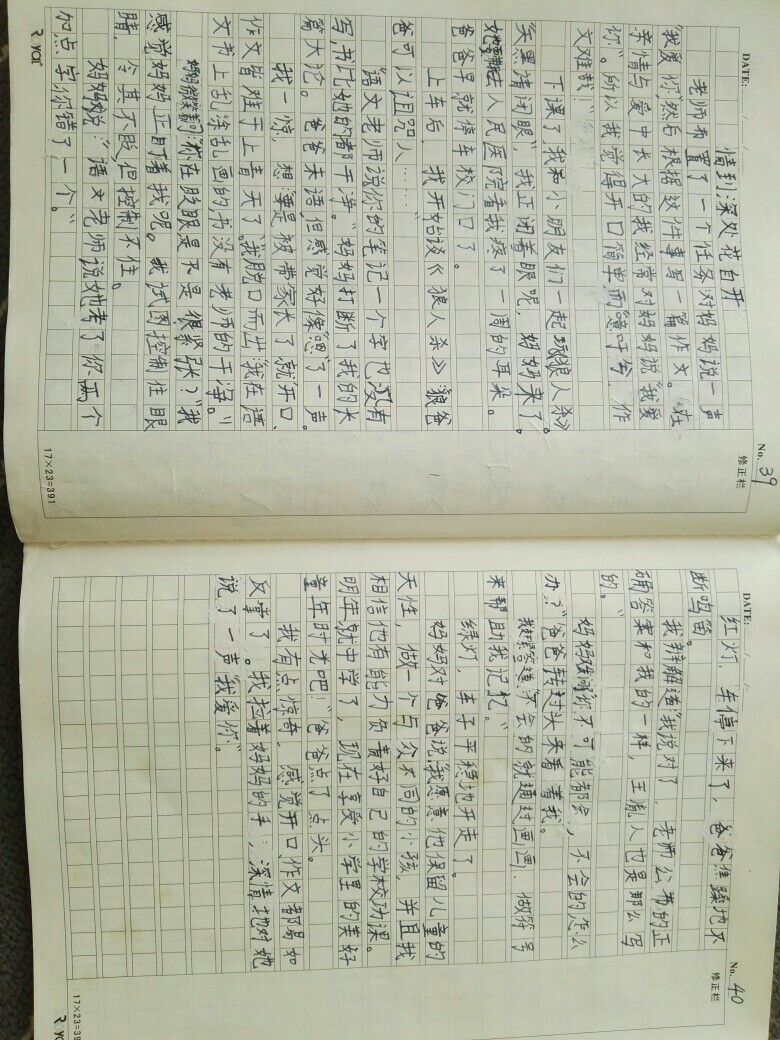 DATE:
No. 39
修正栏
情到深处花自开
老师布置了一个任务对妈妈说一声
"我爱你",然后根据这件事写一篇作文。在
亲情与爱中长大的我经常对妈妈说"我爱
你"。所以我觉得开口简单,而吁兮,作
文难哉!
下课了,我和小朋友们一起玩《狼人杀》。
"天黑请闭眼",我正闭着眼呢,妈妈来了。
她要带我去人民医院看我疼了一周的耳朵。
爸爸早就停车校门口了。
上车后,我开始谈《狼人杀》"狼爸
爸可以诅咒人……"
"语文老师说你的笔记一个字也没有
写,书比她的都干净。"妈妈打断了我的长
篇大论。爸爸未语,但感觉好像"嗯"了一声。
我一惊,想:"要是被带家长了就开口、
作文皆难于上青天了。"我脱口而出:"我在语
文书上乱涂乱画的书没有老师的干净。"
妈妈微笑着:"你在眨眼是不是很紧张?"我
感觉妈妈正盯着我呢。我试图控制住眼
睛,令其不眨,但控制不住。
妈妈说:"语文老师说她考了你两个
加点字,你错了一个。"
17×23=391
DATE:
No. 40
修正栏
红灯,车停下来了,爸爸焦躁地不
断鸣笛。
我辩解道:"我说对了,老师公布的正
确答案和我的一样,王胤人也是那么写
的。"
妈妈"你不可能都会,不会的怎么
办?"爸爸转过头来看着我。
我道:"不会的就通过画画、做符号
来帮助我记忆。"
绿灯,车子平稳地开走了。
妈妈对爸爸说:"我愿意他保留儿童的
天性,做一个与众不同的小孩,并且我
相信他有能力负责好自己的学校功课。
明年就中学了,现在享受小学里的美好
童年时光吧!"爸爸点了点头。
我有点惊奇,感觉开口作文都易如
反掌了。我拉着妈妈的手,深情地对她
说了一声"我爱你"。
17×23=39